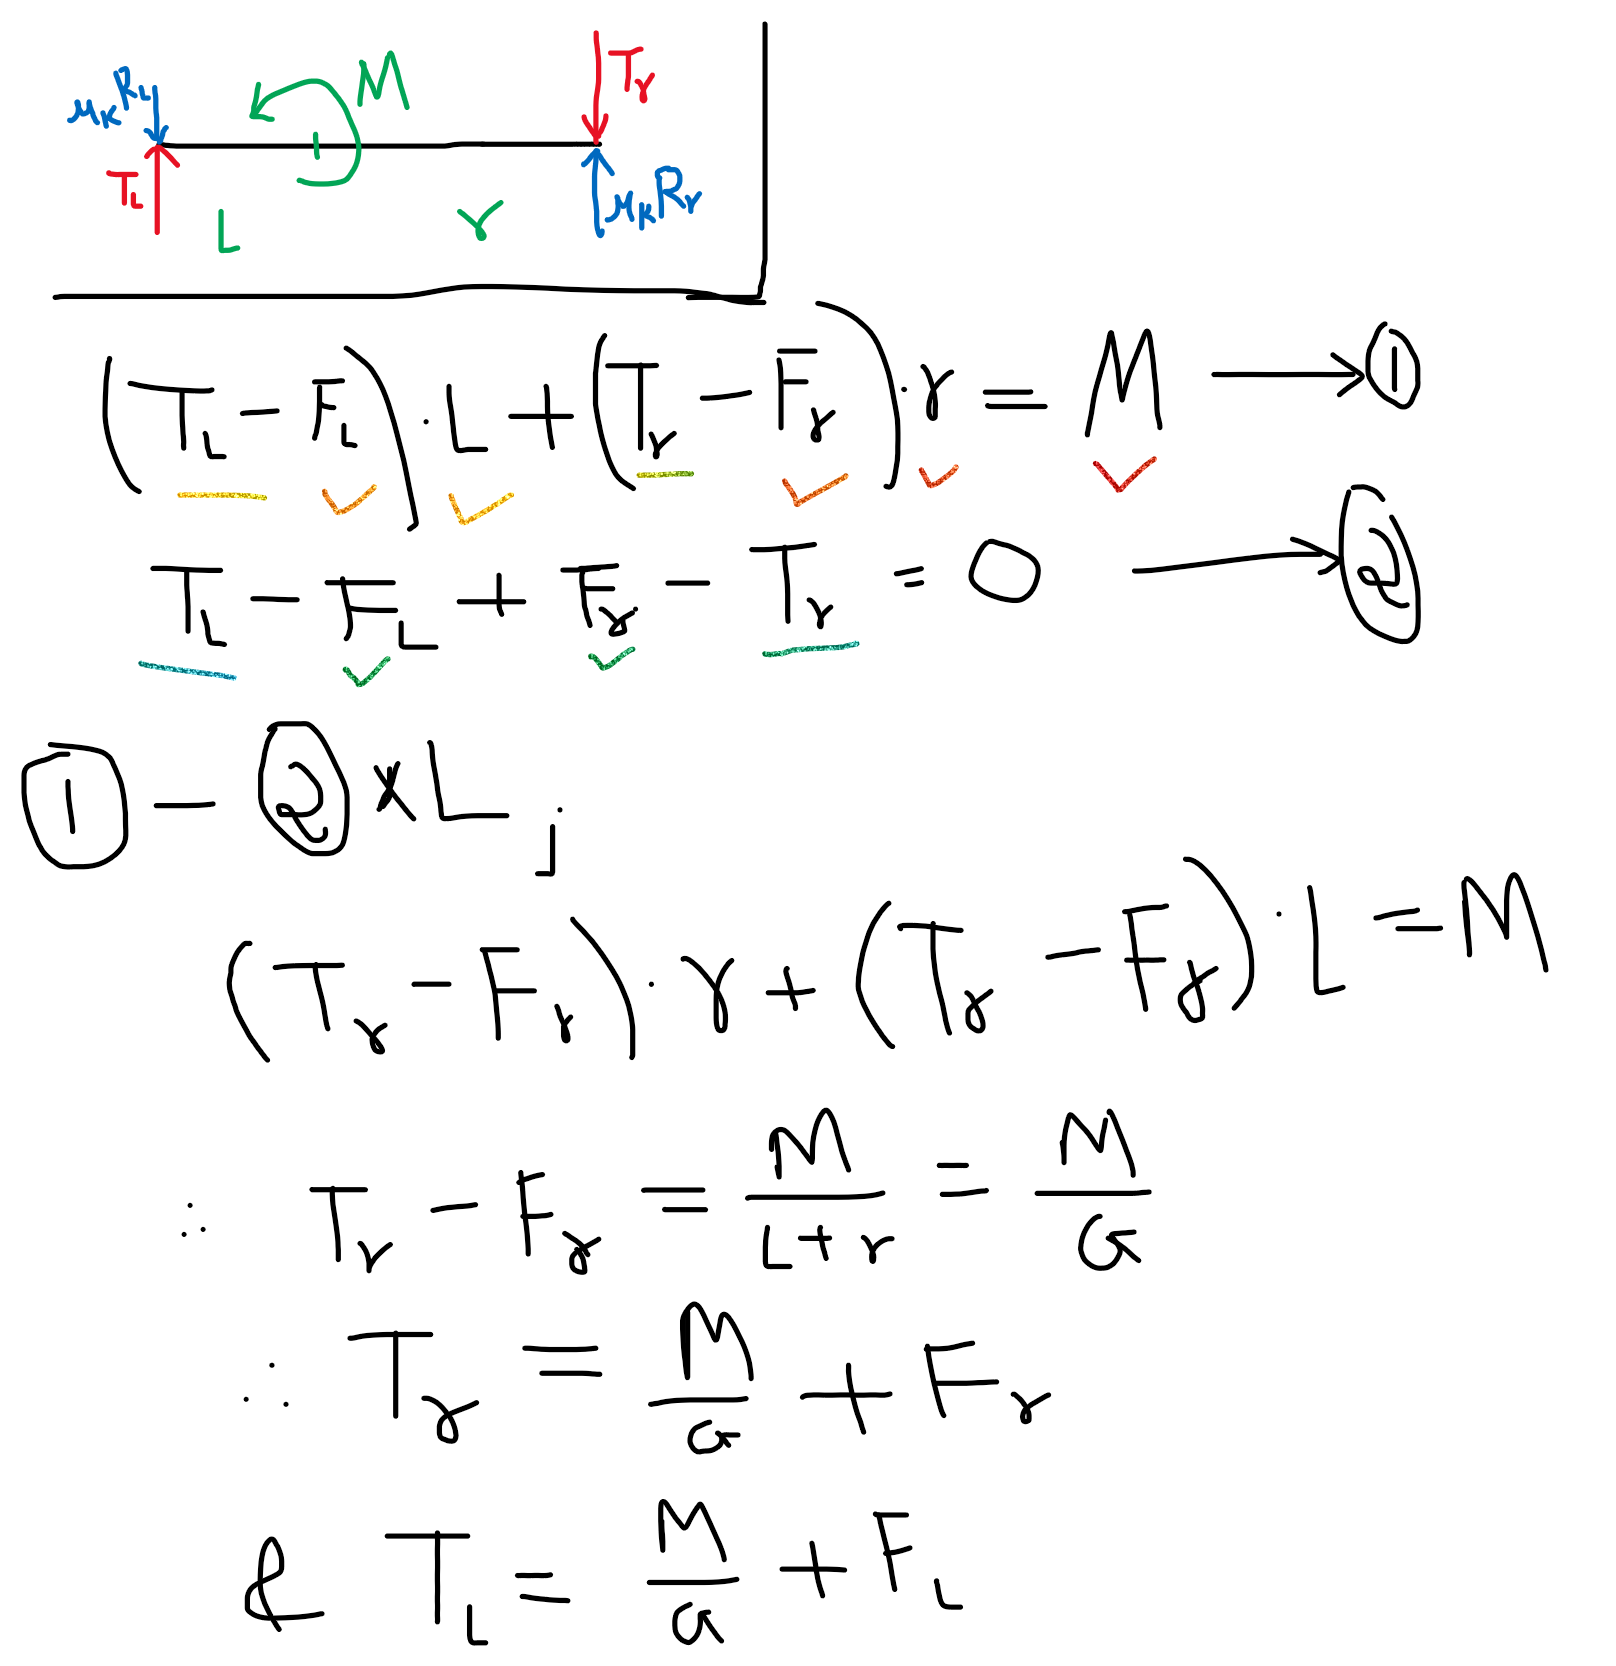 μₖR_L M T_r
T_L L r μₖR_r
(T_L − F_L) · L + (T_r − F_r) · r = M → ①
T_L − F_L + F_r − T_r = 0 → ②
① − ② × L ;
(T_r − F_r) · r + (T_r − F_r) · L = M
∴ T_r − F_r = M/(L + r) = M/a
∴ T_r = M/a + F_r
& T_L = M/a + F_L